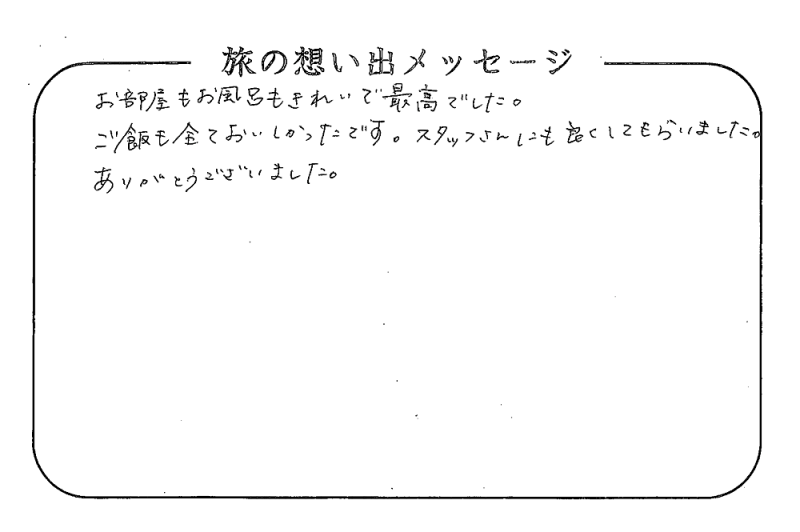 旅の想い出メッセージ
お部屋もお風呂もきれいで最高でした。
ご飯も全ておいしかったです。スタッフさんにも良くしてもらいました。
ありがとうございました。